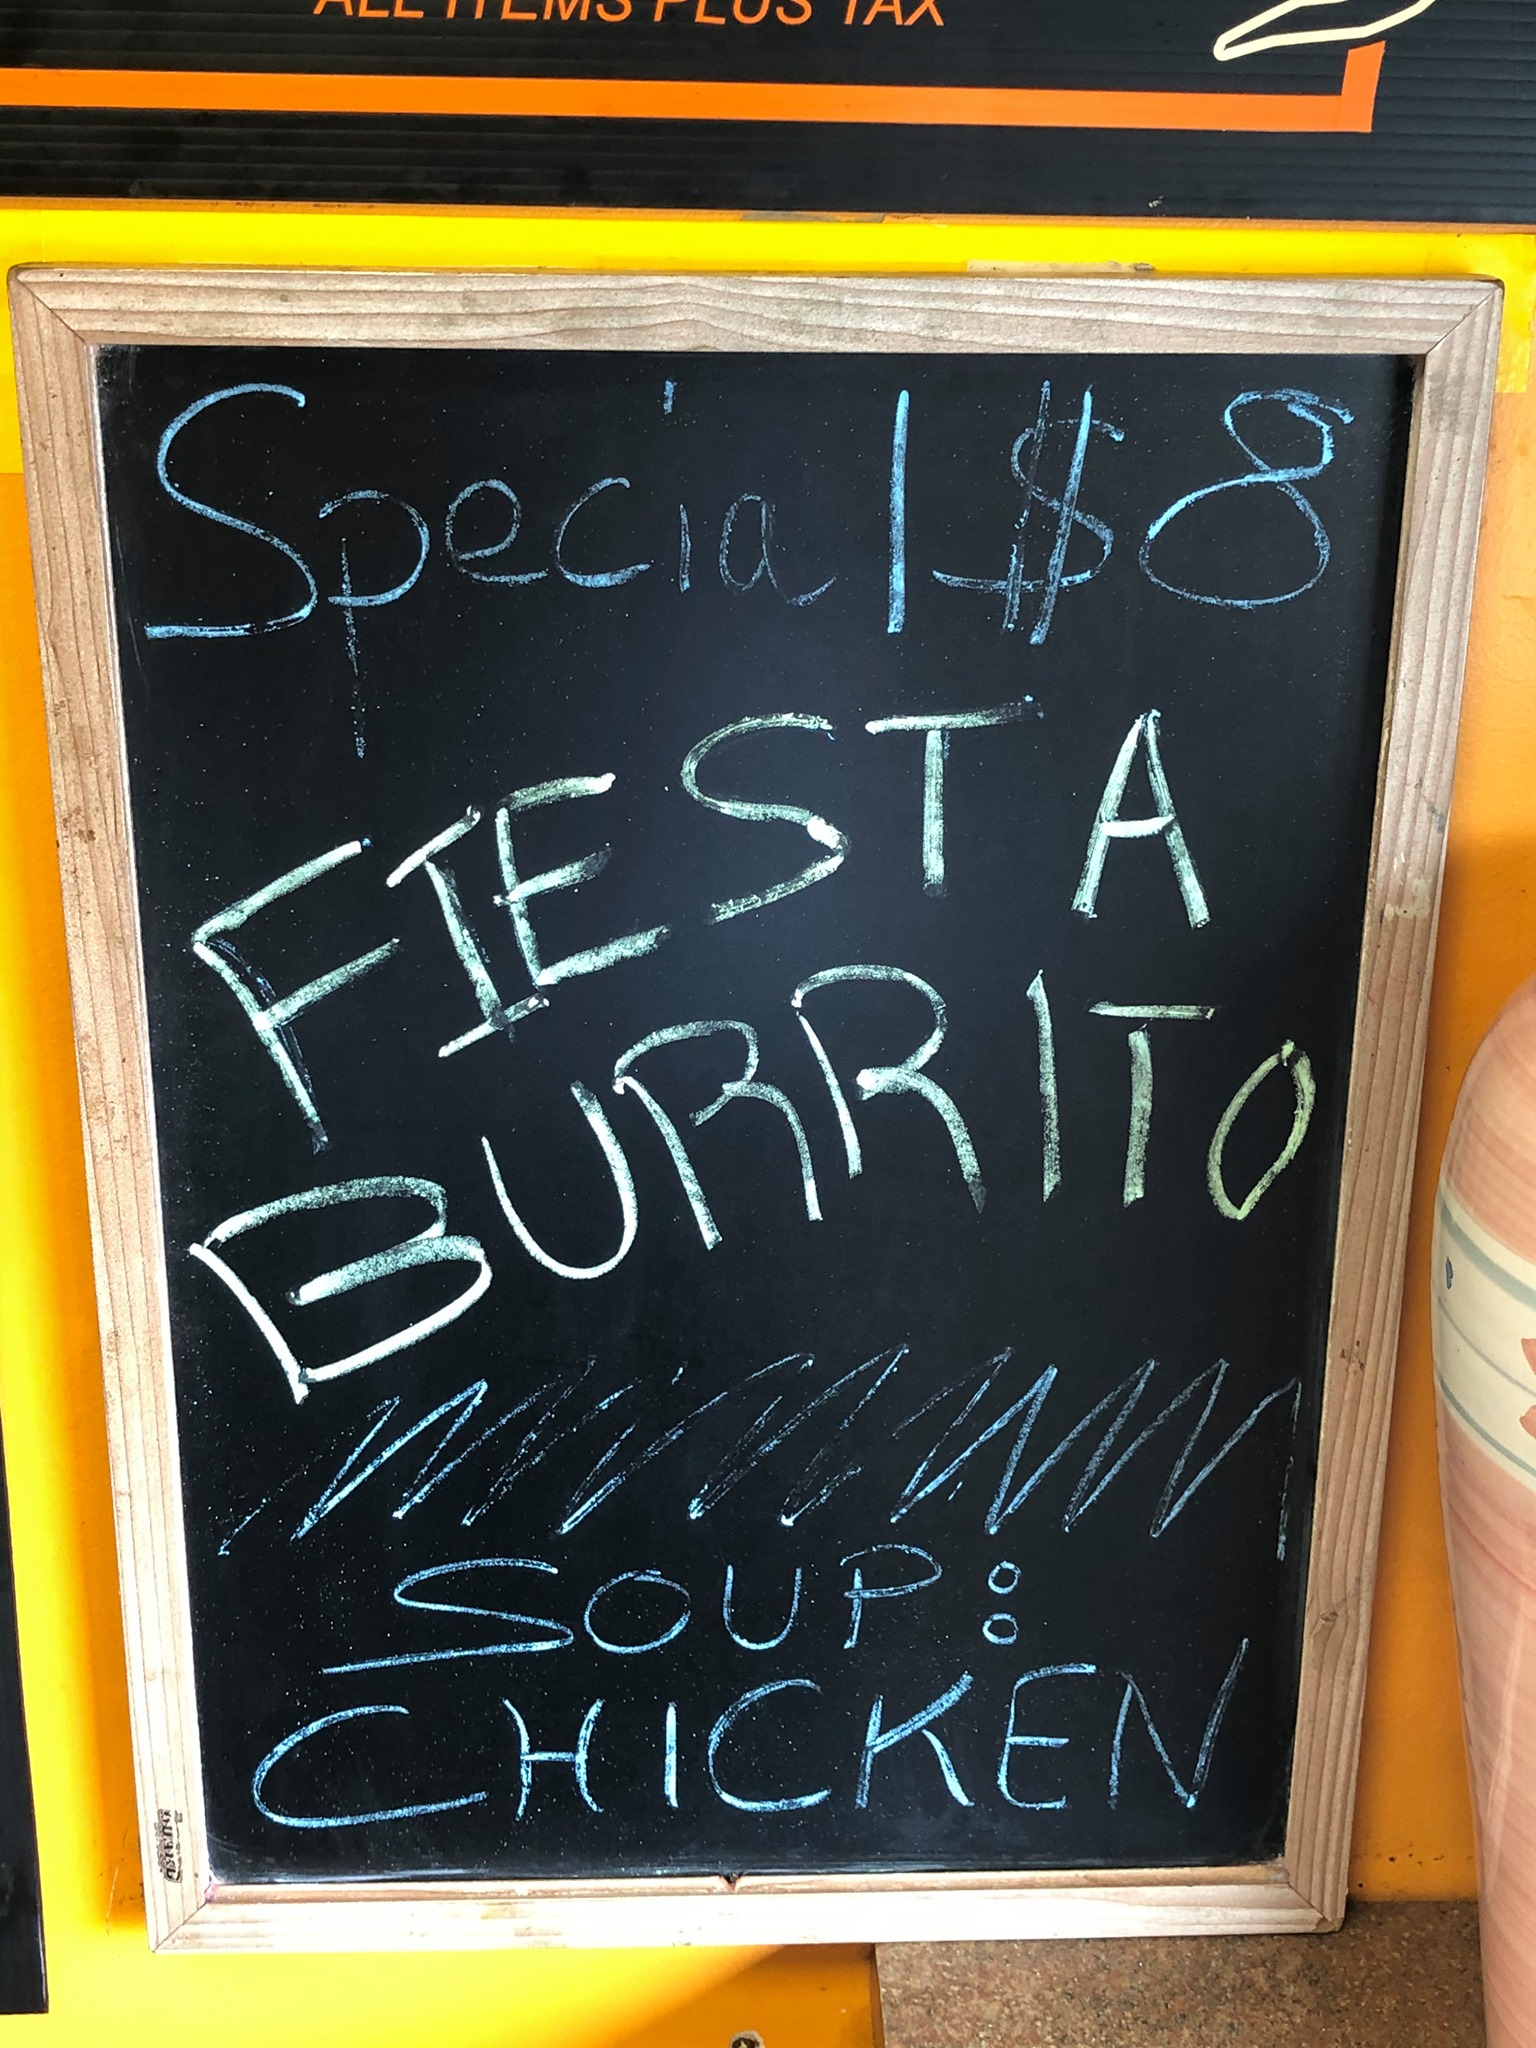 ALL ITEMS PLUS TAX
Special $8
FIESTA
BURRITO
SOUP:
CHICKEN